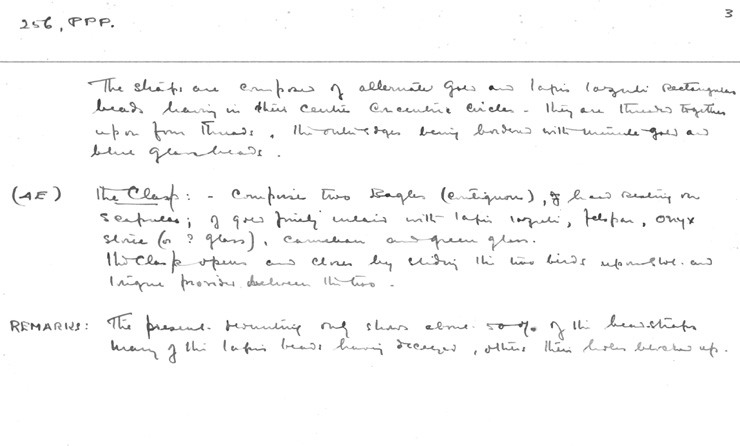 256, PPP.
3
The straps are composed of alternate gold and lapis lazuli rectangular
beads having in their centre concentric circles - they are threaded together
upon four threads, the outer edges being bordered with minute gold and
blue glass beads.
(AE) The Clasp: - Comprise two Eagles (contiguous), of head resting on
scapulas; of gold finely inlaid with lapis lazuli, felspar, onyx
stone (or ? glass), carnelian and green glass.
The Clasp opens and closes by sliding the two birds upon slot and
tongue provided between the two.
REMARKS: The present mounting only shows about 50% of the bead straps
many of the lapis beads having decayed, others their holes blocked up.